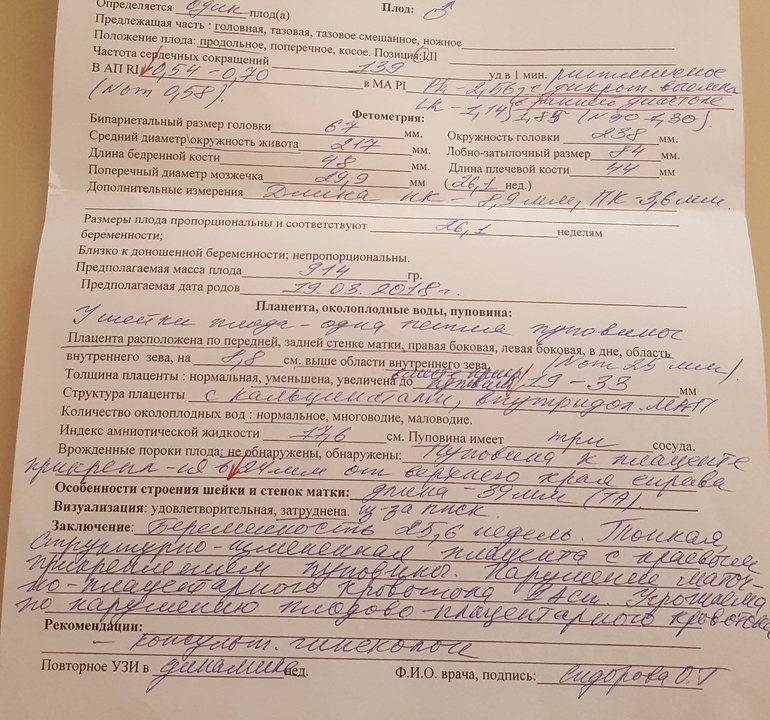 Определяется один плод(а) Плод: ♂
Предлежащая часть : головная, тазовая, тазовое смешанное, ножное
Положение плода: продольное, поперечное, косое. Позиция: I, II
Частота сердечных сокращений 139 уд в 1 мин. ритмичное
В АП RI 0,54 - 0,70 в МА PI Пк - 2,66 с дикрот. выемка
(Nот 0,58). Lк - 1,14 с ранней диастоле
1,85 (N 90 - 1,30).
Фетометрия:
Бипариетальный размер головки 67 мм. Окружность головки 238 мм.
Средний диаметр\окружность живота 217 мм. Лобно-затылочный размер 84 мм.
Длина бедренной кости 48 мм. Длина плечевой кости 44 мм
Поперечный диаметр мозжечка 29,9 мм (26,1 нед.)
Дополнительные измерения Длина нк - 8,9 мм, ПК - 3,6 мм.
Размеры плода пропорциональны и соответствуют 26,1 неделям
беременности;
Близко к доношенной беременности; непропорциональны.
Предполагаемая масса плода 914 гр.
Предполагаемая дата родов 19.03.2018 г.
Плацента, околоплодные воды, пуповина:
У шейки плода - одна петля пуповины
Плацента расположена по передней, задней стенке матки, правая боковая, левая боковая, в дне, область
внутреннего зева, на 8,8 см. выше области внутреннего зева, (Nот 25 мм).
Толщина плаценты : нормальная, уменьшена, увеличена до 19 - 33 мм
Структура плаценты с кальцинатами,
Количество околоплодных вод : нормальное, многоводие, маловодие.
Индекс амниотической жидкости 17,6 см. Пуповина имеет три сосуда.
Врожденные пороки плода: не обнаружены, обнаружены: Пуповина к плаценте
прикрепл-ся в 24 мм от верхнего края справа
Особенности строения шейки и стенок матки: длина - 39 мм (ТА).
Визуализация: удовлетворительная, затруднена.
Заключение: Беременность 25,6 недель. Тонкая,
структурно-измененная плацента с краевым
прикреплением пуповины. Нарушение маточ-
но-плацентарного кровотока Угрожаема
по нарушению плодово-плацентарного кровотока
Рекомендации:
- консульт. гинеколога
Повторное УЗИ в динамике нед. Ф.И.О. врача, подпись: Сидорова О.Г